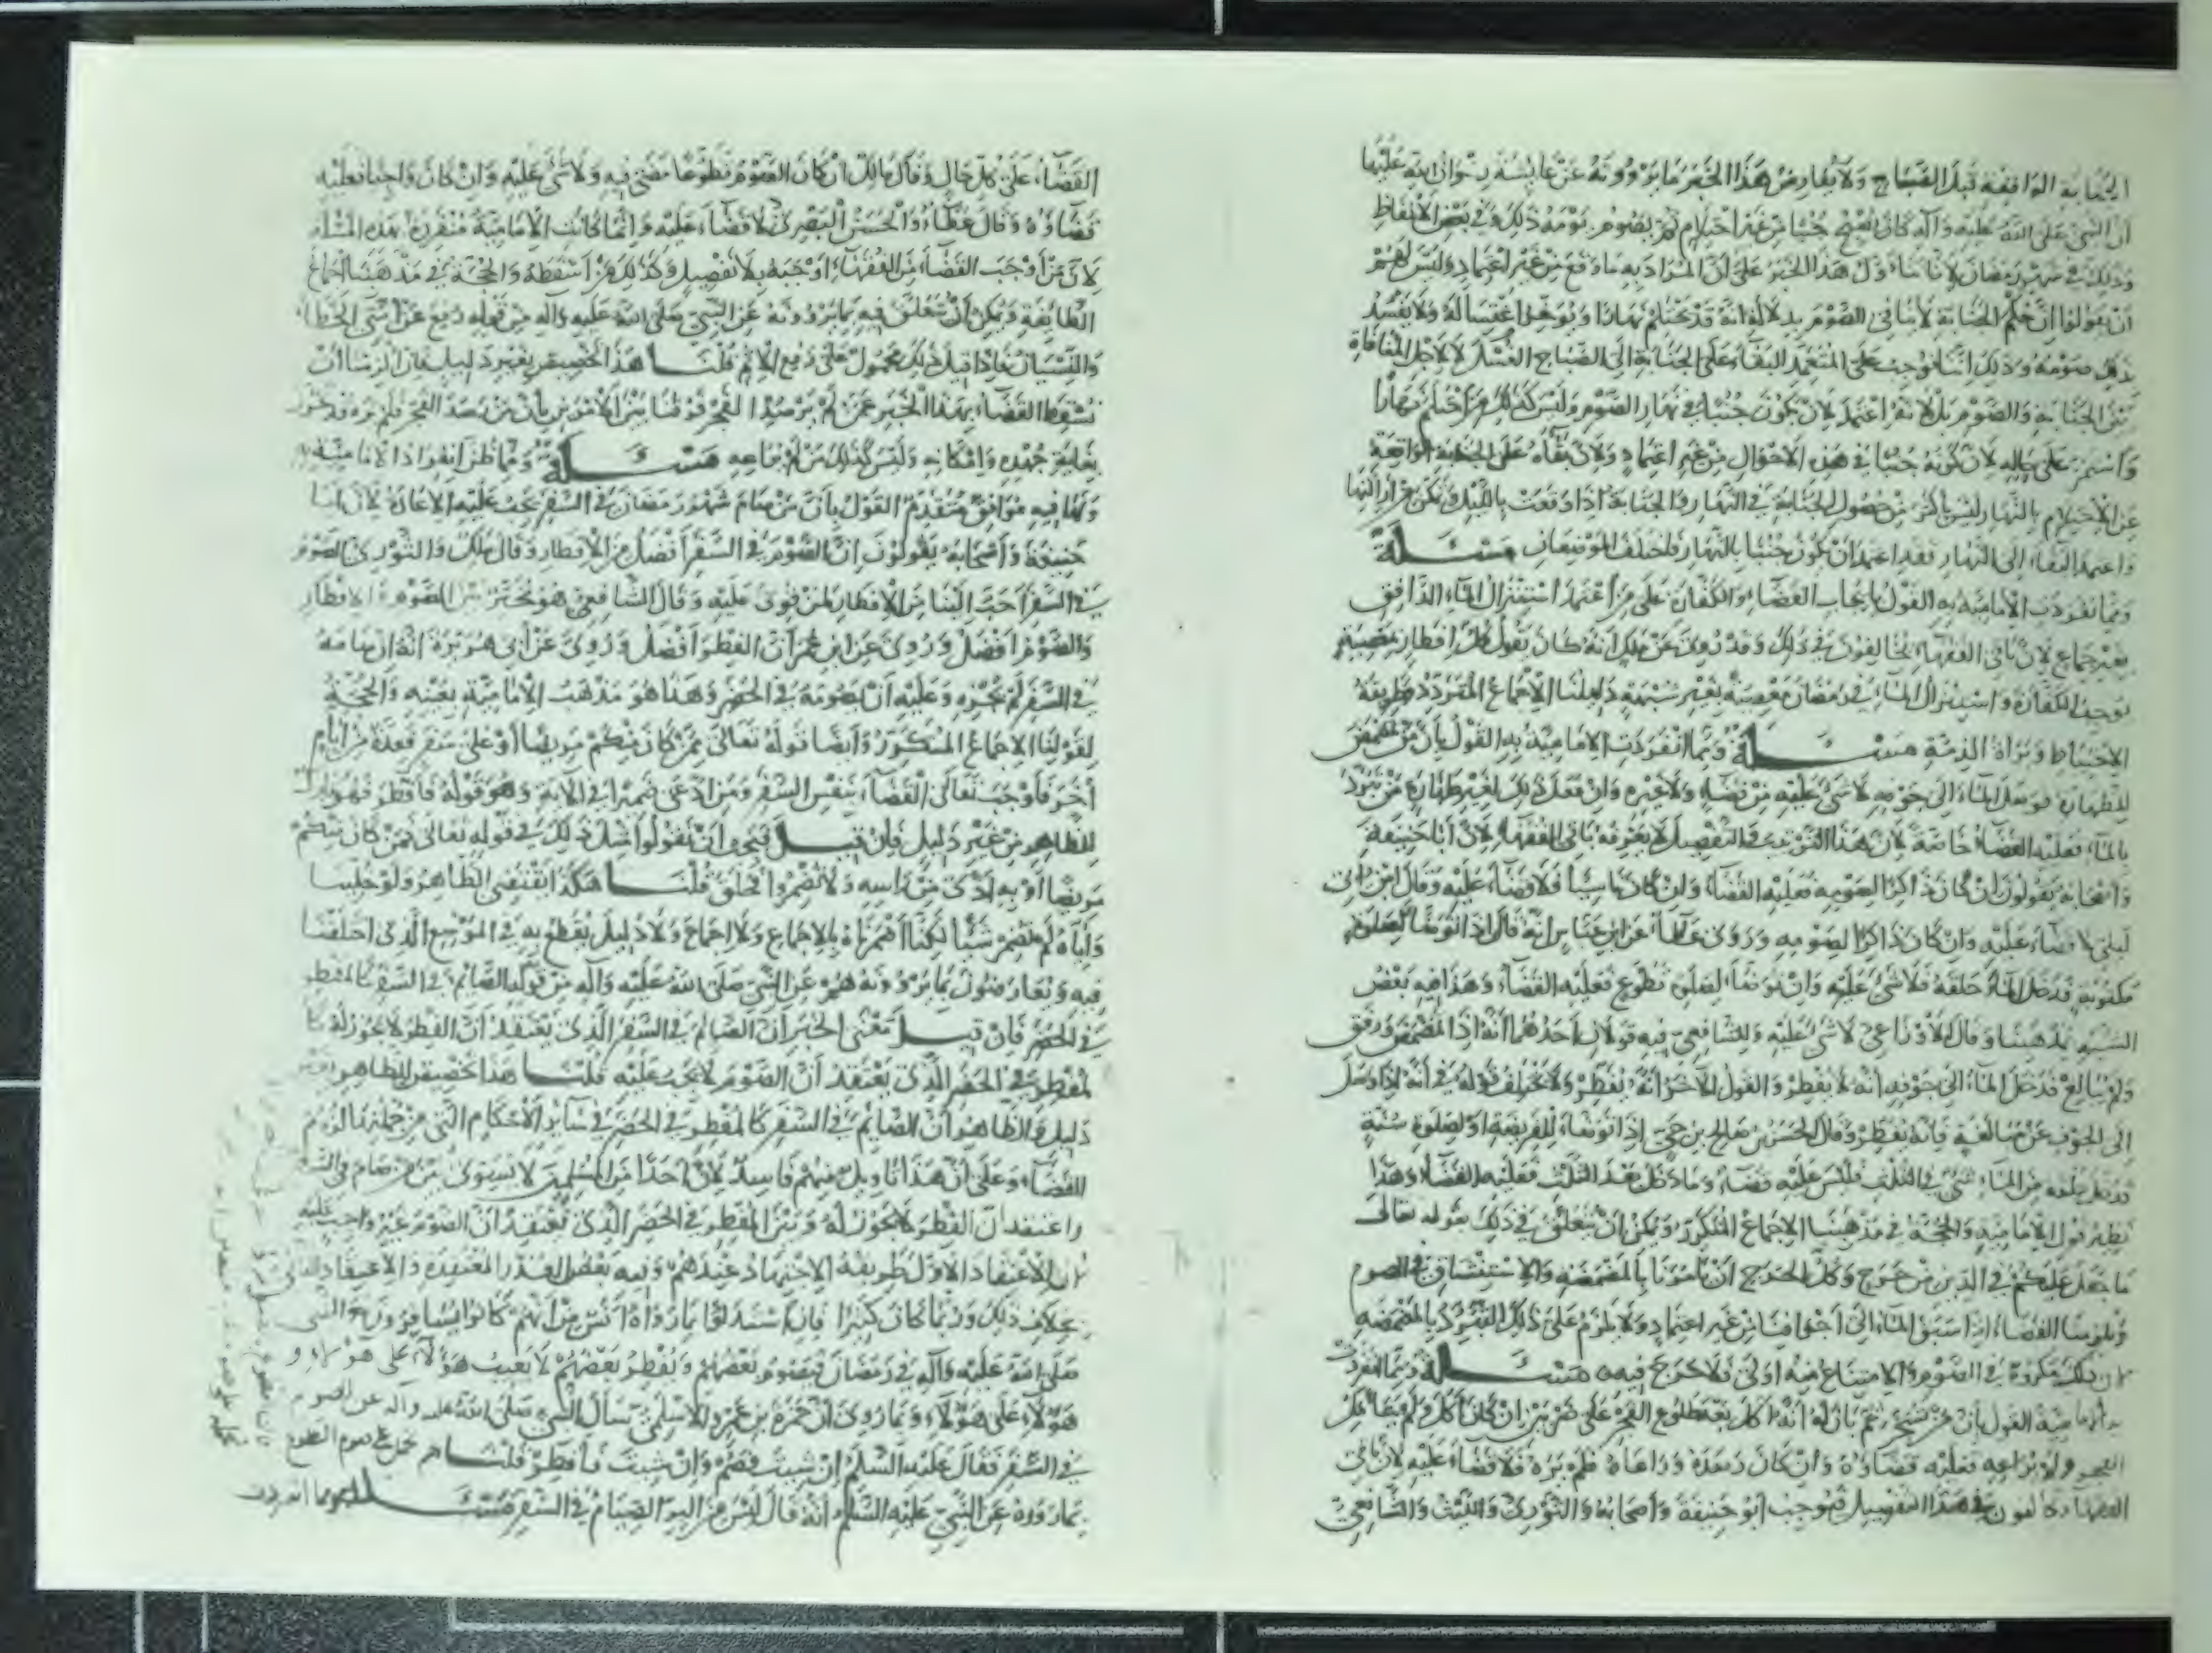 الجنابة الواقعة قبل الصباح ولا يعارض هذا الخبر ما يروونه عن عايشة رضوان الله عليها
ان النبي صلى الله عليه وآله كان يصبح جنبا من غير احتلام ثم يصوم يومه ذلك وفي بعض الالفاظ
وذلك في شهر رمضان لانا نتأول هذا الخبر على أن المراد به ما وقع من غير اعتماد وليس لهم
ان يقولوا ان حكم الجنابة لا ينافي الصوم بدلالة انه قد يحتلم نهارا ويؤخر اغتساله ولا يفسد
ذلك صومه وذلك اننا لم نوجب على المتعمد البقاء على الجنابة الى الصباح الغسل لاجل المنافاة
بين الجنابة والصوم بل لانه اعتمد لان يكون جنبا في نهار الصوم وليس كذلك من احتلم نهارا
واستمر على حاله لان كونه جنبا في هذه الاحوال من غير اعتماد ولان بقاه على الجنابة الواقعة
عن الاحتلام بالنهار ليس بأكثر من حصول الجنابة في النهار والجنابة اذا وقعت بالليل وتمكن من ازالتها
واعتمد البقاء الى النهار فقد اعتمد ان يكون جنبا بالنهار فاختلف الموضعان مسئلة
ومما تفردت الامامية به القول بايجاب القضاء والكفارة على من اعتمد استنزال الماء الدافق
بغير جماع لان باقي الفقهاء يخالفون في ذلك وقد روي عن ملك انه كان يقول كل افطار بمعصية
يوجب الكفارة واستنزال الماء في رمضان معصية بغير شبهة دليلنا الاجماع المتردد وطريقة
الاحتياط وبراة الذمة مسئلة ومما انفردت الامامية به القول بأن من تمضمض
للطهارة فوصل الماء الى جوفه لا شئ عليه من قضاء ولا غيره وان فعل ذلك لغير طهارة من تبرد
بالماء فعليه القضاء خاصة لان هذا الترتيب والتفصيل لا يعرفه باقي الفقهاء لان أبا حنيفة
واصحابه يقولون ان كان ذاكرا لصومه فعليه القضاء وان كان ناسيا فلا قضاء عليه وقال ابن ابي
ليلى لا قضاء عليه وان كان ذاكرا لصومه وروى عطاء عن ابن عباس انه قال اذا توضأ لصلوة
مكتوبة فدخل الماء حلقه فلا شئ عليه وان توضأ لصلوة تطوع فعليه القضاء وهذا فيه بعض
الشبه بمذهبنا وقال الاوزاعي لا شئ عليه وللشافعي فيه قولان احدهما أنه اذا تمضمض ورفق
ولم يبالغ فدخل الماء الى جوفه انه لا يفطر والقول الآخر انه يفطر ولا يختلف قوله في أنه اذا وصل
الى الجوف عن مبالغة فانه يفطر وقال الحسن بن صالح بن حي اذا توضأ للفريضة او لصلوة سنة
فدخل حلقه من الماء شئ في الثلث فليس عليه قضاء وما دخل بعد الثلث فعليه القضاء وهذا
نظير قول الامامية والحجة في مذهبنا الاجماع المتكرر ويمكن ان يتعلق في ذلك بقوله تعالى
ما جعل عليكم في الدين من حرج وكل الحرج ان يأمرنا بالمضمضة والاستنشاق في الصوم
ويلزمنا القضاء اذا سبق الماء الى أجوافنا من غير اعتماد ولا يلزم على ذلك التبرد بالمضمضة
لان ذلك مكروه في الصوم والامتناع منه اولى فلا حرج فيه مسئلة ومما انفردت
به الامامية القول بأن من تسحر ثم بان له انه اكل بعد طلوع الفجر على ضربين ان كان أكل ولم يتأمل
الفجر ولم يراعه فعليه قضاؤه وان كان رصده وراعاه فلم يره فلا قضاء عليه لان باقي
الفقهاء يخالفون في هذا التفصيل فيوجب ابو حنيفة وأصحابه والثوري والليث والشافعي
القضاء على كل حال وقال مالك ان كان الصوم تطوعا مضى فيه ولا شئ عليه وان كان واجبا فعليه
قضاؤه وقال عطاء والحسن البصري لا قضاء عليه وانما كانت الامامية منفردة بهذه المسألة
لان من أوجب القضاء من الفقهاء اوجبه بلا تفصيل وكذلك من اسقطه والحجة في مذهبنا اجماع
الطايفة ويمكن أن يتعلق فيه بما يروونه عن النبي صلى الله عليه وآله من قوله رفع عن أمتي الخطأ
والنسيان فاذا قيل ذلك محمول على رفع الاثم قلنا هذا تخصيص بغير دليل فان الزمنا ان
نسقط القضاء بهذا الخبر عمن لم يرصد الفجر فرقنا بين الامرين بأن من رصد الفجر فلم يره قد تحرز
بغاية جهده وامكانه وليس كذلك من لم يراعه مسئلة ومما ظن انفراد الامامية به
ولها فيه موافق متقدم القول بأن من صام شهر رمضان في السفر يجب عليه الاعادة لان ابا
حنيفة وأصحابه يقولون ان الصوم في السفر أفضل من الافطار وقال ملك والثوري الصوم
في السفر احب الينا من الافطار لمن قوي عليه وقال الشافعي هو مخير بين الصوم والافطار
والصوم افضل وروي عن ابن عمر أن الفطر افضل وروي عن أبي هريرة انه ان صامه
في السفر لم يجزه وعليه أن يصومه في الحضر وهذا هو مذهب الامامية بعينه والحجة
لقولنا الاجماع المتكرر وأيضا قوله تعالى فمن كان منكم مريضا أو على سفر فعدة من أيام
أخر فأوجب تعالى القضاء بنفس السفر ومن ادعى ضميرا في الآية وهو قوله فافطر فهو تارك
للظاهر من غير دليل فان قيل فيجب ان تقولوا مثل ذلك في قوله تعالى فمن كان منكم
مريضا او به اذى من رأسه ولا تضمروا فحلق قلنا هكذا يقتضي الظاهر ولو خلينا
واياه لم نضمر شيئا لكنا اضمرناه بالاجماع ولا اجماع ولا دليل يقطع به في الموضع الذي اختلفنا
فيه ويعارضون بما يروونه هم عن النبي صلى الله عليه وآله من قوله الصائم في السفر كالمفطر
في الحضر فان قيل معنى الخبر أن الصائم في السفر الذي يعتقد أن الفطر لا يجوز له كا
لمفطر في الحضر الذي يعتقد أن الصوم لا يجب عليه قلنا هذا تخصيص للظاهر بغير
دليل والظاهر أن الصايم في السفر كالمفطر في الحضر في ساير الاحكام التي من جملتها لزوم
القضاء وعلى ان هذا تأويل منهم فاسد لان احدا من المسلمين لا يسوي بين من صام في السفر
واعتقد ان الفطر لا يجوز له وبين المفطر في الحضر الذي يعتقد أن الصوم غير واجب عليه
لان الاعتقاد الاول طريقه الاجتهاد عندهم وفيه بعض العذر لمعتقده والاعتقاد الثاني
بخلاف ذلك وربما كان كفرا فان استدلوا بما رواه أنس من أنهم كانوا يسافرون مع النبي
صلى الله عليه وآله في رمضان فيصوم بعضهم ويفطر بعضهم لا يعيب هؤلاء على هؤلاء و
هؤلاء على هؤلاء وبما روي ان حمزة بن عمرو الاسلمي سأل النبي صلى الله عليه وآله عن الصوم
في السفر فقال عليه السلم ان شيت فصم وان شيت فأفطر قلنا هو محمول على صوم التطوع
بما رووه عن النبي عليه السلم أنه قال ليس من البر الصيام في السفر مسئلة ومما انفردت